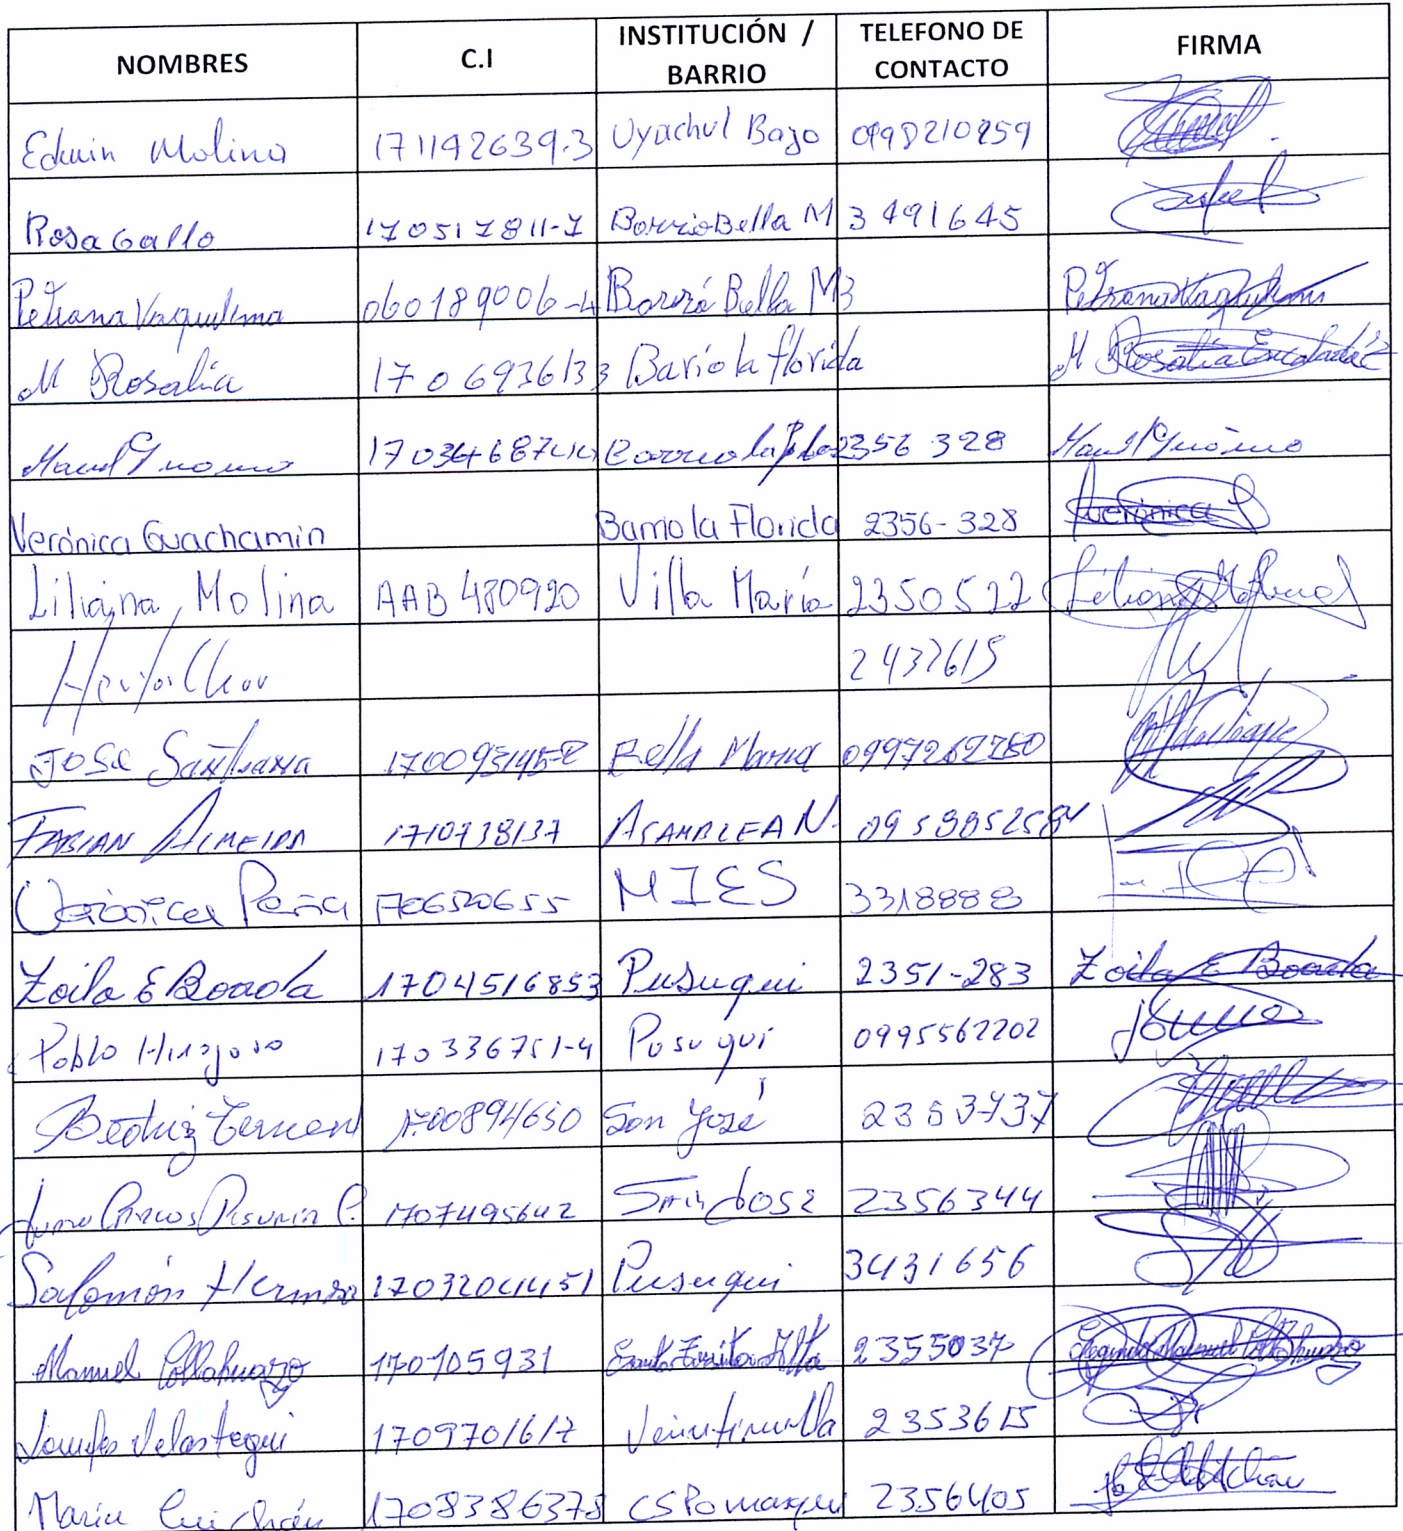 NOMBRES C.I INSTITUCIÓN / BARRIO TELEFONO DE CONTACTO FIRMA
Edwin Molina 171192639-3 Uyachul Bajo 0998210259
Rosa Gallo 170517811-7 Barrio Bella M 3491645
Petrona Vaquilema 060189006-4 Barrió Bella M3 Petrona Vaquilema
M Rosalia 1706936133 Bario la florida M Rosalia
Barrio la 2356 328
Verónica Guachamin Barrio la Florida 2356-328 Verónica G
Liliana Molina AAB 480920 Villa María 2350522 Liliana Molina
2437615
José Santiana Bella Maria 0997262760
FABIAN ALMEIDA 1710738137 ASAMBLEA N. 0958852584
Verónica Peña MIES 3318888
Zoila E Boada 1704516853 Pusuqui 2351-283 Zoila E Boada
Pablo Hinojosa 170336751-4 Pusuqui 0995562202
Beatriz 1700894650 San José 2353737
1707495642 San José 2356344
Salomón Hermosa 1703204451 Pusuqui 3431656
Manuel Collahuazo 170105931 Santa Teresita Alta 2355037 Segundo Manuel Collahuazo
Lourdes Velastegui 1709701617 Veintimilla 2353615
Maria Cuichán 1708386378 CS Pomasqui 2356405